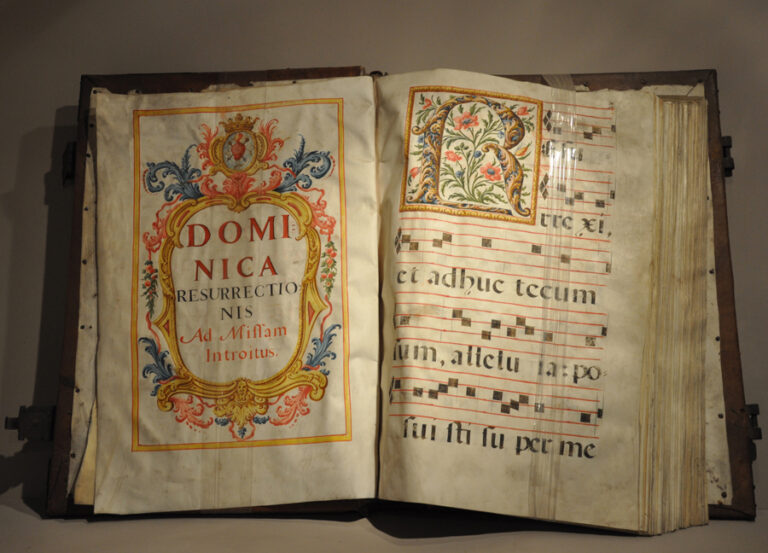 DOMI
NICA
RESURRECTIO
NIS
Ad Miſſam
Introitus.
R
rre xi,
et adhuc tecum
sum, allelu ia: po
sui sti su per me